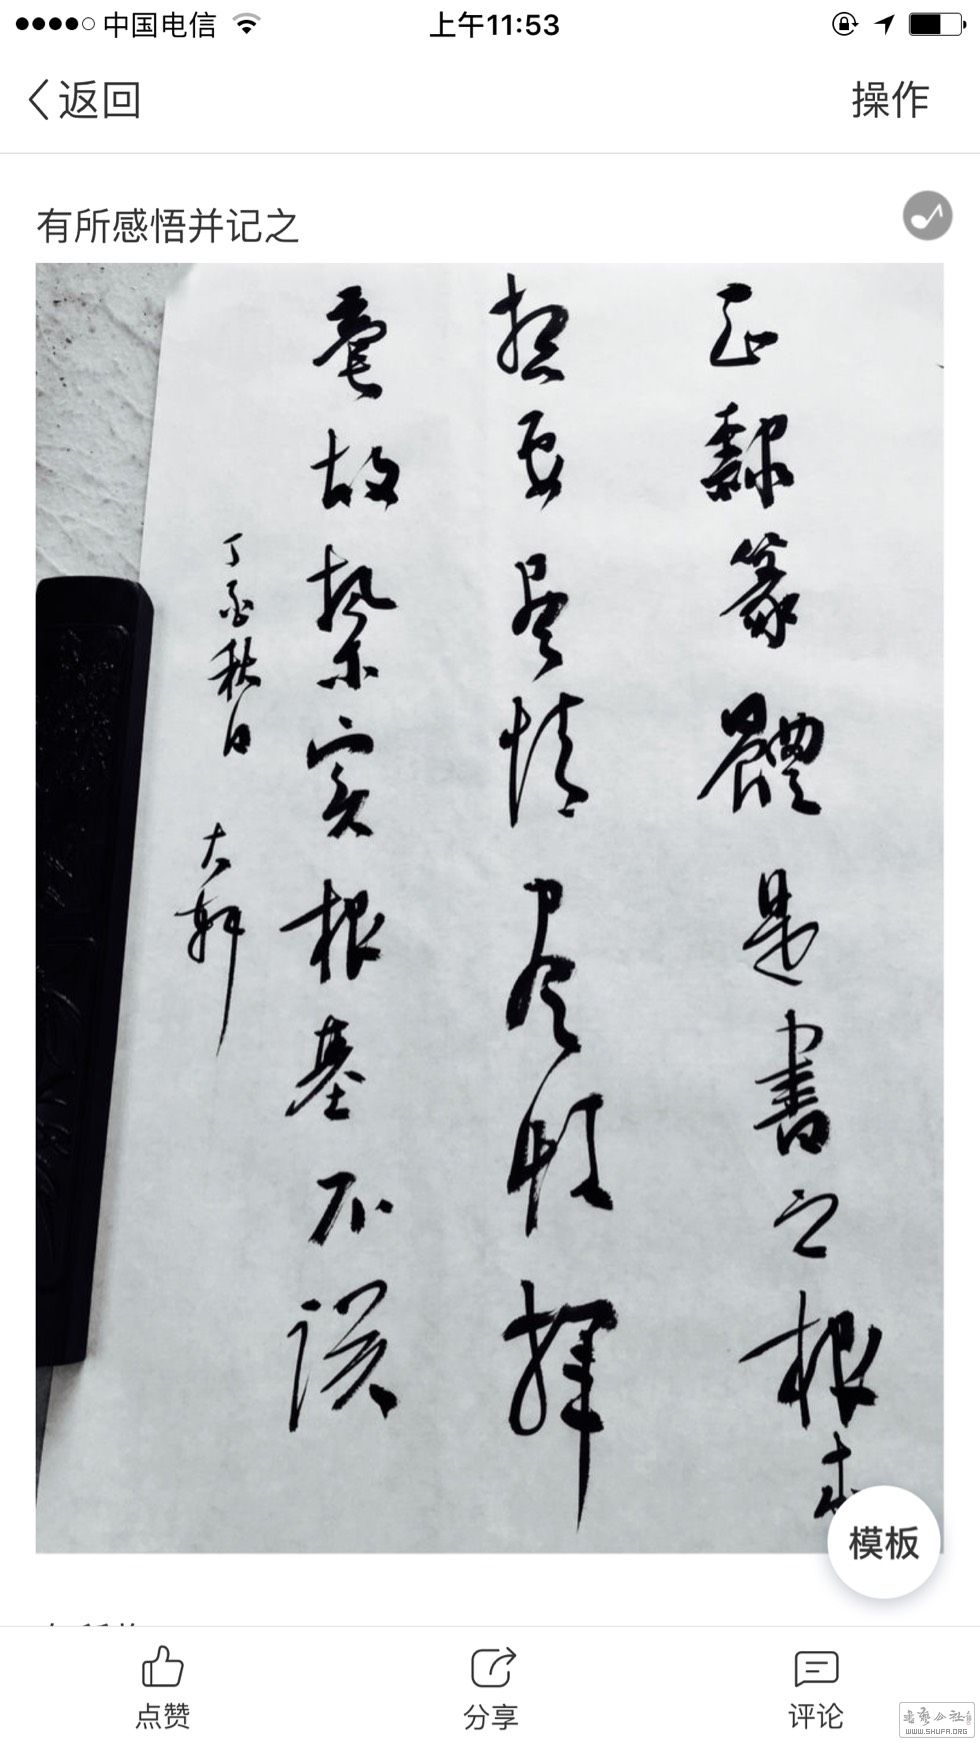 中国电信 上午11:53
返回 操作
有所感悟并记之
正隸篆體是書之根本
按要尽情尽性揮
毫故紮实根基不误
丁酉秋日 大軒
模板
点赞 分享 评论
WWW.SHUFA.ORG